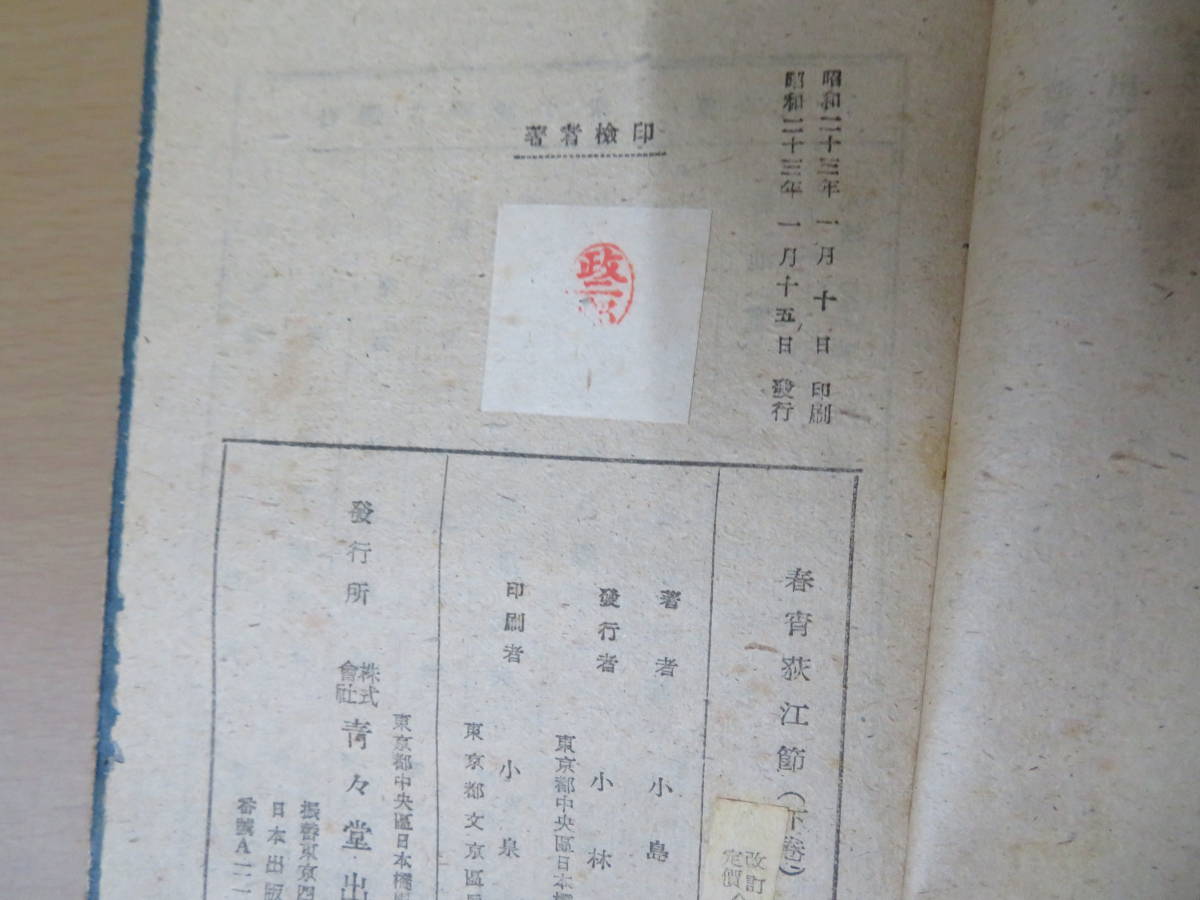 昭和二十三年一月十日 印刷
昭和二十三年一月十五日 發行
著者檢印
政二郎
春宵荻江節(下卷)
改訂
定價
著者 小島
發行者 小林
東京都中央區日本橋
印刷者 小泉
東京都文京區
發行所 株式會社 青々堂出
東京都中央區日本橋
振替東京四
日本出版
番號A一一